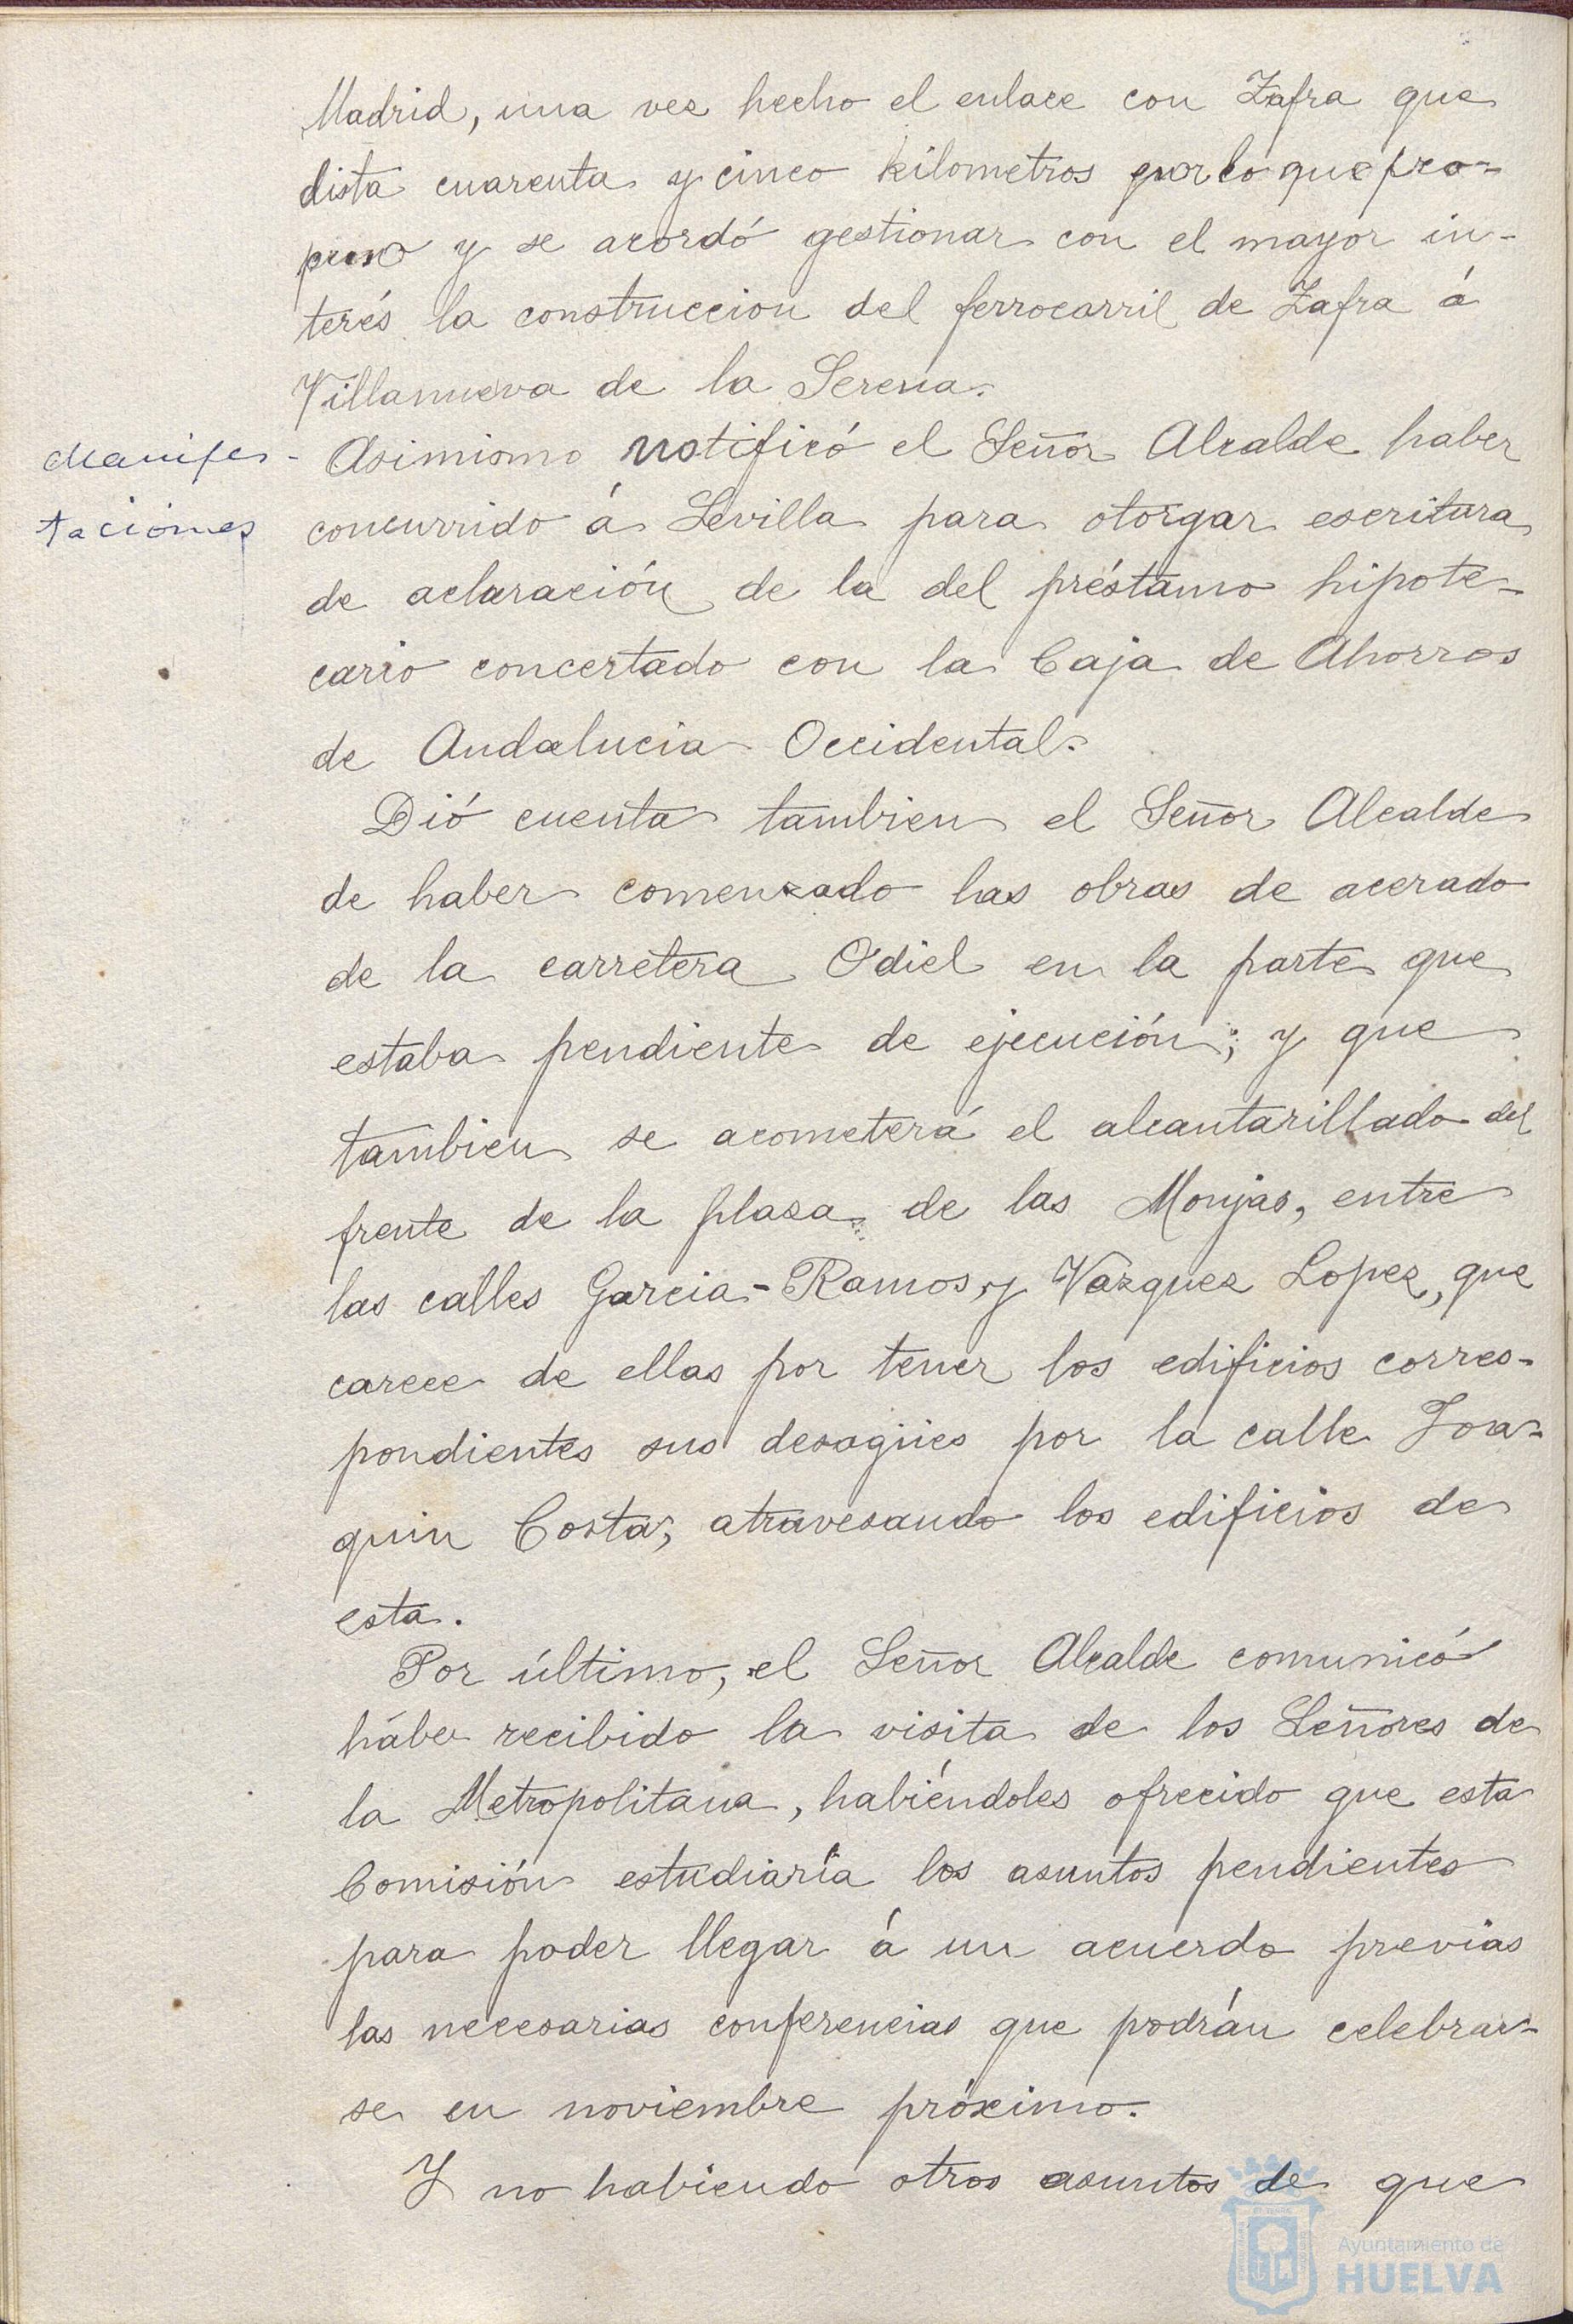 Madrid, una vez hecho el enlace con Zafra que
dista cuarenta y cinco kilometros por lo que pro-
puso y se acordó gestionar con el mayor in-
terés la construccion del ferrocarril de Zafra á
Villanueva de la Serena.
Manifes-
taciones
Asimismo notificó el Señor Alcalde haber
concurrido á Sevilla para otorgar escritura
de aclaración de la del préstamo hipote-
cario concertado con la Caja de Ahorros
de Andalucia Occidental.
Dió cuenta tambien el Señor Alcalde
de haber comenzado las obras de acerado
de la carretera Odiel en la parte que
estaba pendiente de ejecución; y que
tambien se acometerá el alcantarillado del
frente de la plaza de las Monjas, entre
las calles Garcia-Ramos y Vazquez Lopez, que
carece de ellas por tener los edificios corres-
pondientes sus desagües por la calle Joa-
quin Costa, atravesando los edificios de
esta.
Por último, el Señor Alcalde comunicó
háber recibido la visita de los Señores de
la Metropolitana, habiéndoles ofrecido que esta
Comisión estudiaría los asuntos pendientes
para poder llegar á un acuerdo previas
las necesarias conferencias que podrán celebrar-
se en noviembre próximo.
Y no habiendo otros asuntos de que
Ayuntamiento de
HUELVA